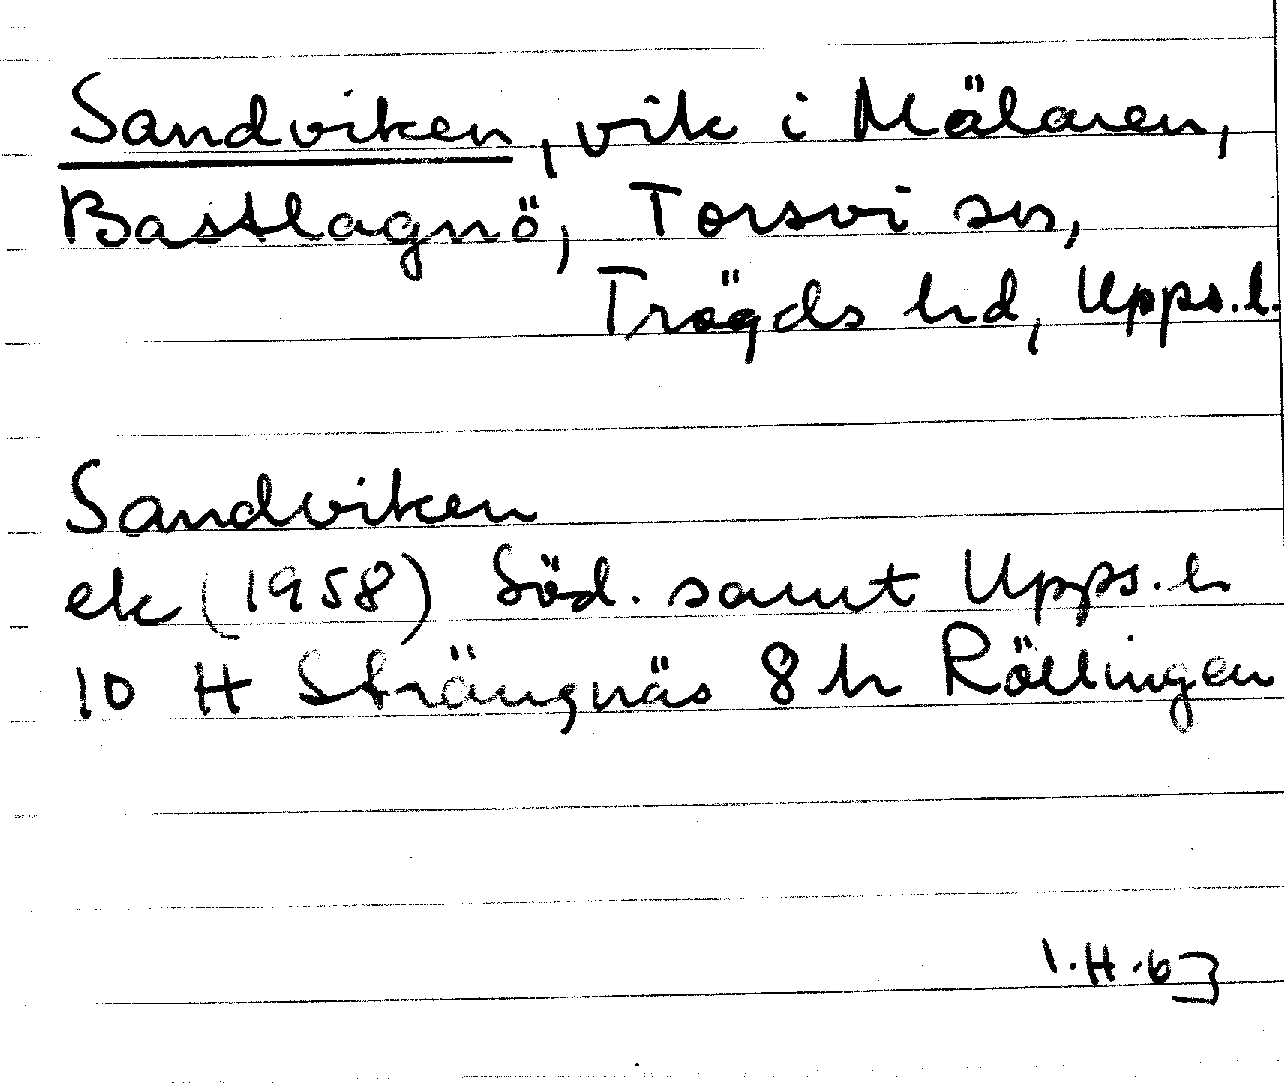 Sandviken, vik i Mälaren,
Bastlagnö, Torsvi sn,
Trögds hd, Upps.l.
Sandviken
ek (1958) Söd. samt Upps.l.
10 H Strängnäs 8 h Röllingen
I.H.63